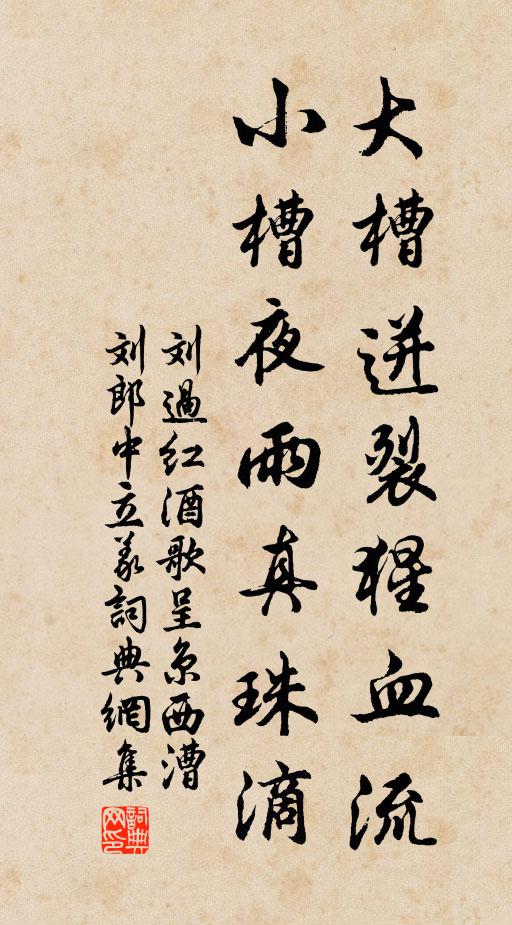 大槽迸裂猩血流
小槽夜雨真珠滴
刘過红酒歌呈京西漕
刘郎中立义詞典網集
詞典网印